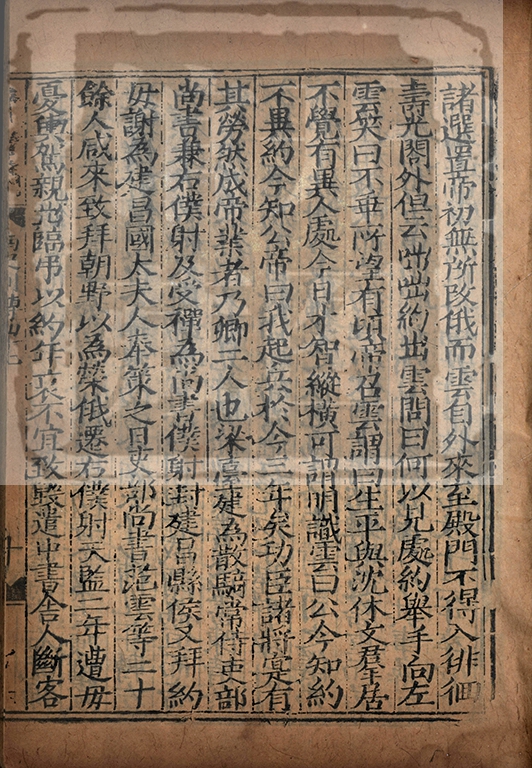 諸選置帝初無所改俄而雲自外來至殿門不得入徘徊
壽光閣外但云咄咄約出雲問曰何以見處約舉手向左
雲笑曰不乖所望有頃帝召雲謂曰生平與沈休文羣居
不覺有異人處今日才智縱橫可謂明識雲曰公今知約
不異約今知公帝曰我起兵於今三年矣功臣諸將寔有
其勞然成帝業者乃卿二人也梁臺建為散騎常侍吏部
尚書兼右僕射及受禪為尚書僕射封建昌縣侯又拜約
母謝為建昌國太夫人奉策之日吏部尚書范雲等二十
餘人咸來致拜朝野以為榮俄遷右僕射天監二年遭母
憂輿駕親出臨弔以約年衰不宜致毀遣中書舍人斷客